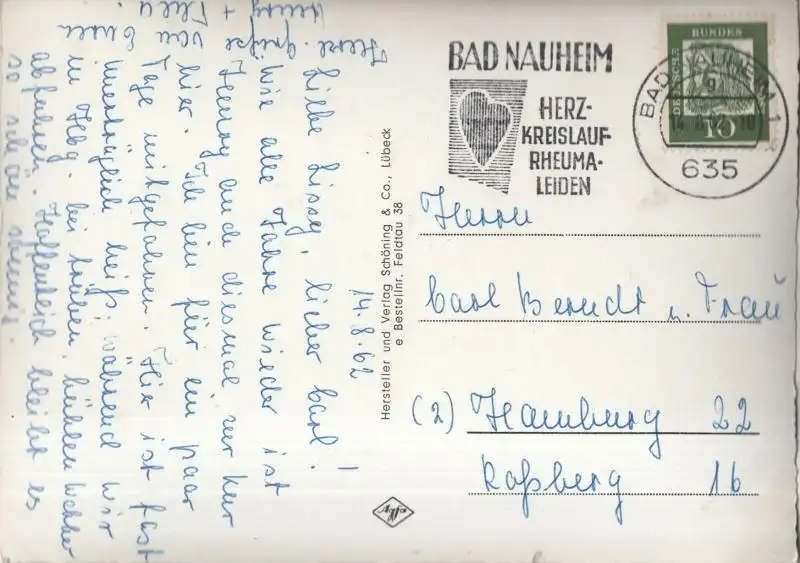 14.8.62
Liebe Lissy, lieber Carl!
Wie alle Jahre wieder ist
Henny auch diesmal zur Kur
hier. Ich bin für ein paar
Tage mitgefahren. Hier ist fast
unerträglich heiß, während wir
in Hbg. bei trüben, kühlen Wetter
abfuhren. Hoffentlich bleibt es
so schön sonnig.
Herzl. Grüße
von Euren
Henny +
Thea
Hersteller und Verlag Schöning & Co., Lübeck
e Bestellnr. Feldtau 38
Agfa
BAD NAUHEIM
HERZ-
KREISLAUF-
RHEUMA-
LEIDEN
DEUTSCHE BUNDES
10
BAD NAUHEIM 1
g
635
Herrn
Carl Berndt u. Frau
(2) Hamburg 22
Roßberg 16